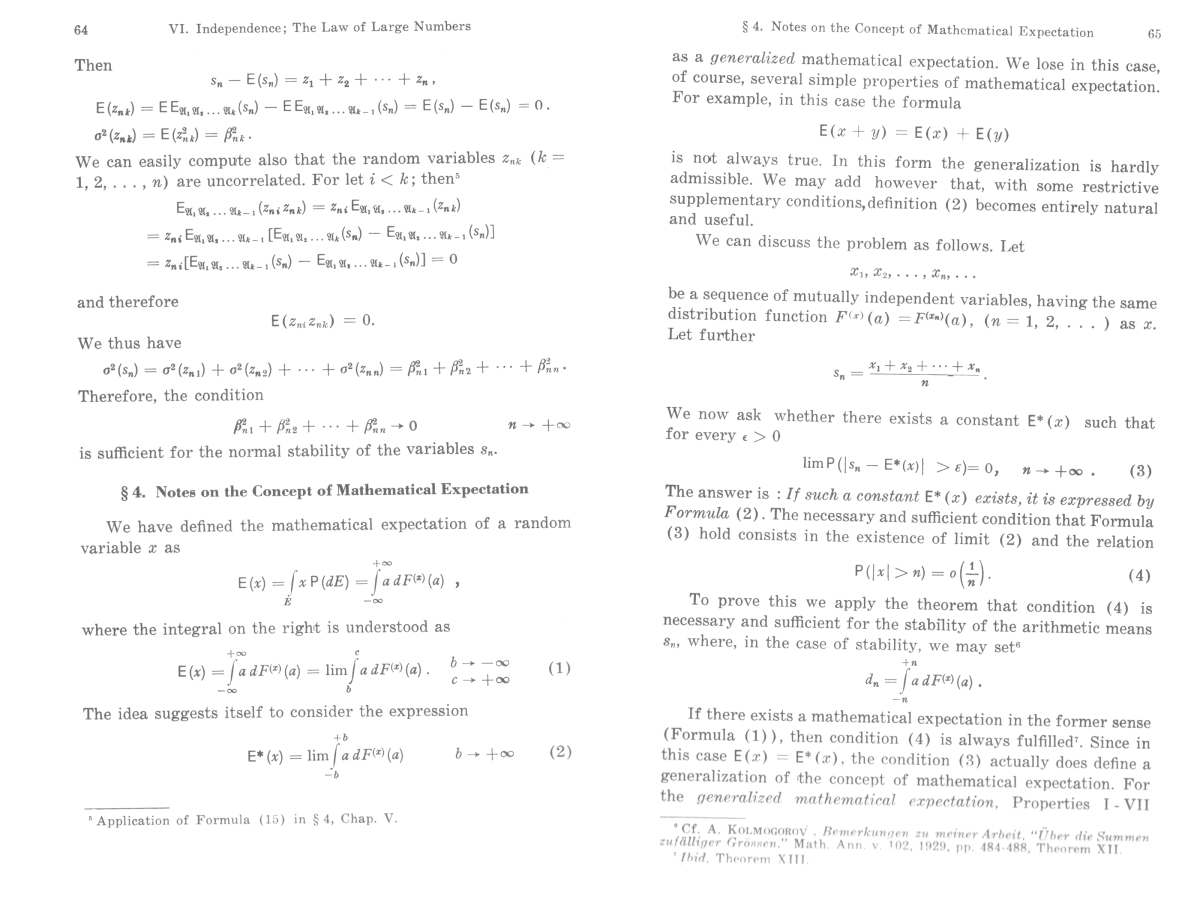 64 VI. Independence; The Law of Large Numbers
Then
sₙ − E(sₙ) = z₁ + z₂ + ··· + zₙ ,
E(zₙₖ) = E E_{𝔄₁ 𝔄₂ ... 𝔄ₖ}(sₙ) − E E_{𝔄₁ 𝔄₂ ... 𝔄ₖ₋₁}(sₙ) = E(sₙ) − E(sₙ) = 0 .
σ²(zₙₖ) = E(z²ₙₖ) = β²ₙₖ .
We can easily compute also that the random variables zₙₖ (k =
1, 2, . . . , n) are uncorrelated. For let i < k; then⁵
E_{𝔄₁ 𝔄₂ ... 𝔄ₖ₋₁}(zₙᵢ zₙₖ) = zₙᵢ E_{𝔄₁ 𝔄₂ ... 𝔄ₖ₋₁}(zₙₖ)
= zₙᵢ E_{𝔄₁ 𝔄₂ ... 𝔄ₖ₋₁}[E_{𝔄₁ 𝔄₂ ... 𝔄ₖ}(sₙ) − E_{𝔄₁ 𝔄₂ ... 𝔄ₖ₋₁}(sₙ)]
= zₙᵢ[E_{𝔄₁ 𝔄₂ ... 𝔄ₖ₋₁}(sₙ) − E_{𝔄₁ 𝔄₂ ... 𝔄ₖ₋₁}(sₙ)] = 0
and therefore
E(zₙᵢ zₙₖ) = 0.
We thus have
σ²(sₙ) = σ²(zₙ₁) + σ²(zₙ₂) + ··· + σ²(zₙₙ) = β²ₙ₁ + β²ₙ₂ + ··· + β²ₙₙ .
Therefore, the condition
β²ₙ₁ + β²ₙ₂ + ··· + β²ₙₙ → 0 n → +∞
is sufficient for the normal stability of the variables sₙ.
§ 4. Notes on the Concept of Mathematical Expectation
We have defined the mathematical expectation of a random
variable x as
E(x) = ∫_E x P(dE) = ∫_{−∞}^{+∞} a dF⁽ˣ⁾(a) ,
where the integral on the right is understood as
E(x) = ∫_{−∞}^{+∞} a dF⁽ˣ⁾(a) = lim ∫_b^c a dF⁽ˣ⁾(a) . b → −∞ c → +∞ (1)
The idea suggests itself to consider the expression
E*(x) = lim ∫_{−b}^{+b} a dF⁽ˣ⁾(a) b → +∞ (2)
⁵ Application of Formula (15) in § 4, Chap. V.
§ 4. Notes on the Concept of Mathematical Expectation 65
as a generalized mathematical expectation. We lose in this case,
of course, several simple properties of mathematical expectation.
For example, in this case the formula
E(x + y) = E(x) + E(y)
is not always true. In this form the generalization is hardly
admissible. We may add however that, with some restrictive
supplementary conditions, definition (2) becomes entirely natural
and useful.
We can discuss the problem as follows. Let
x₁, x₂, . . . , xₙ, . . .
be a sequence of mutually independent variables, having the same
distribution function F⁽ˣ⁾(a) = F⁽ˣⁿ⁾(a), (n = 1, 2, . . . ) as x.
Let further
sₙ = (x₁ + x₂ + ··· + xₙ)/n .
We now ask whether there exists a constant E*(x) such that
for every ϵ > 0
lim P(|sₙ − E*(x)| > ε) = 0, n → +∞ . (3)
The answer is : If such a constant E*(x) exists, it is expressed by
Formula (2). The necessary and sufficient condition that Formula
(3) hold consists in the existence of limit (2) and the relation
P(|x| > n) = o(1/n) . (4)
To prove this we apply the theorem that condition (4) is
necessary and sufficient for the stability of the arithmetic means
sₙ, where, in the case of stability, we may set⁶
dₙ = ∫_{−n}^{+n} a dF⁽ˣ⁾(a) .
If there exists a mathematical expectation in the former sense
(Formula (1)), then condition (4) is always fulfilled⁷. Since in
this case E(x) = E*(x), the condition (3) actually does define a
generalization of the concept of mathematical expectation. For
the generalized mathematical expectation, Properties I - VII
⁶ Cf. A. KOLMOGOROV , Bemerkungen zu meiner Arbeit, "Über die Summen
zufälliger Grössen." Math. Ann. v. 102, 1929, pp. 484-488, Theorem XII.
⁷ Ibid, Theorem XIII.